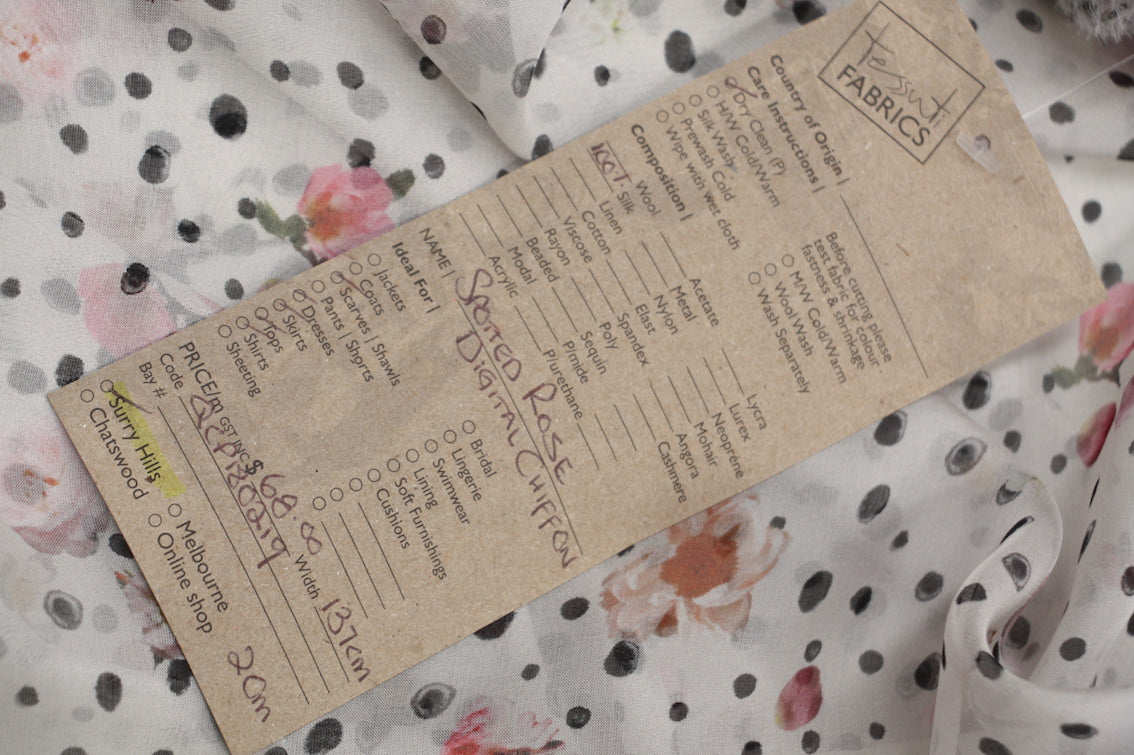 Tessuti
FABRICS
Country of Origin |
Care Instructions |
Dry Clean (P)
H/W Cold/Warm
Silk Wash
Prewash Cold
Wipe with wet cloth
Before cutting please
test fabric for colour
fastness & shrinkage
M/W Cold/Warm
Wool Wash
Wash Separately
Composition |
Wool Acetate Lycra
100% Silk Metal Lurex
Linen Nylon Neoprene
Cotton Elast Mohair
Viscose Spandex Angora
Rayon Poly Cashmere
Beaded Sequin
Modal P/mide
Acrylic P/urethane
NAME | SPOTTED ROSE
DIGITAL CHIFFON
Ideal For |
Jackets Bridal
Coats Lingerie
Scarves | Shawls Swimwear
Pants | Shorts Lining
Dresses Soft Furnishings
Skirts Cushions
Tops
Shirts
Sheeting
PRICE/m GST INC $68.00 Width 137cm
Code
Bay #
Surry Hills Melbourne
Chatswood Online shop
20m